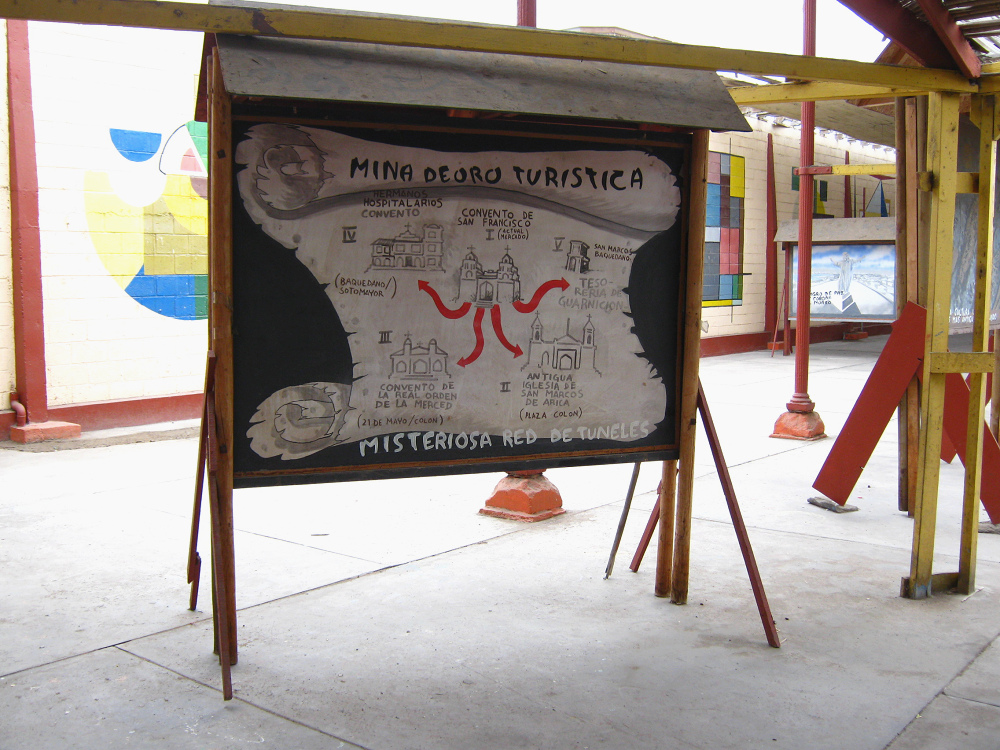 MINA DE ORO TURISTICA
HERMANOS
HOSPITALARIOS
CONVENTO
IV
(BAQUEDANO/
SOTOMAYOR)
CONVENTO DE
SAN FRANCISCO
I (ACTUAL
MERCADO)
V
SAN MARCOS
BAQUEDANO
TESO-
RERIA DE
GUARNICION
III
CONVENTO DE
LA REAL ORDEN
DE LA MERCED
(21 DE MAYO/COLON)
II
ANTIGUA
IGLESIA DE
SAN MARCOS
DE ARICA
(PLAZA COLON)
MISTERIOSA RED DE TUNELES